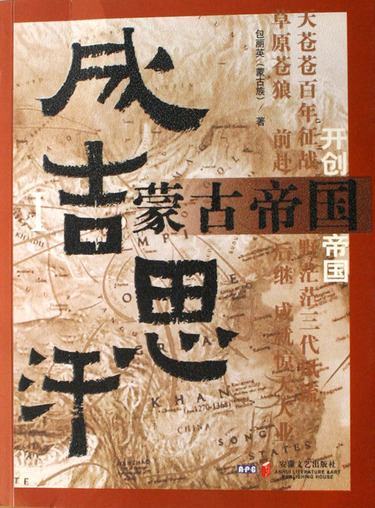 天苍苍百年征战 野茫茫三代
草原苍狼 前赴后继 成就惊天大业
包丽英（蒙古族） 著
开创 帝国
成吉思汗
蒙古帝国
I
KHAN
(1270-1368)
CHINA
SONG
STATES
APG
安徽文艺出版社
ANHUI LITERATURE &ART
PUBLISHING HOUSE